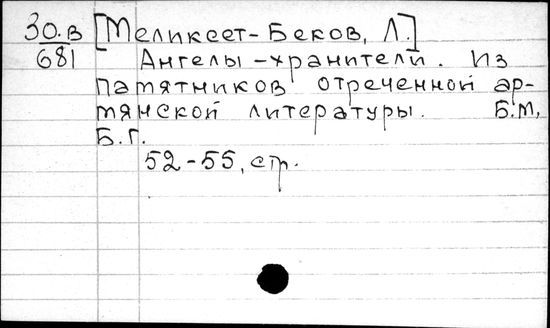 30.В [Меликсет-Беков, Л.]
681 Ангелы-хранители. Из
памятников отреченной ар-
мянской литературы. Б.М,
Б.Г.
52-55, стр.